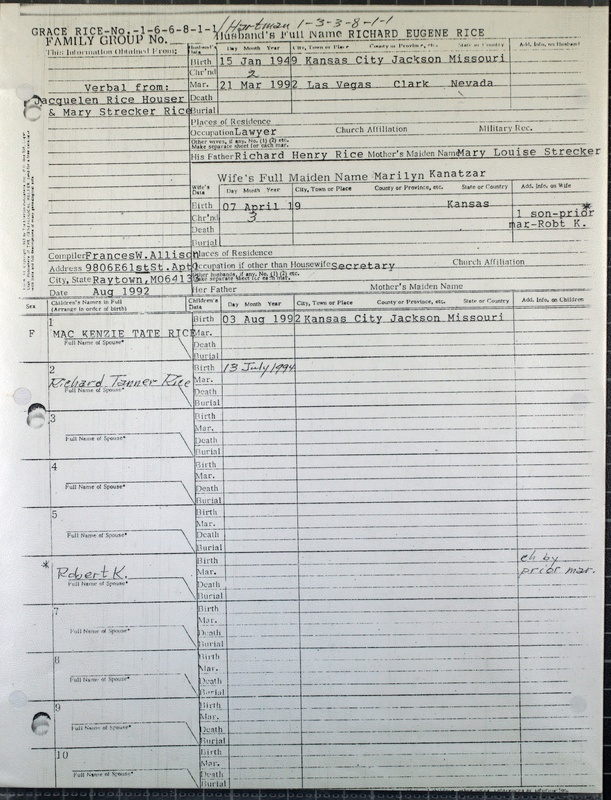 GRACE RICE-No.-1-6-6-8-1-1/Hartman 1-3-3-8-1-1
FAMILY GROUP No. Husband's Full Name RICHARD EUGENE RICE
This Information Obtained From:
Husband's Data Day Month Year City, Town or Place County or Province, etc. State or Country Add. Info. on Husband
Birth 15 Jan 1949 Kansas City Jackson Missouri
Chr'nd 2
Verbal from: Mar. 21 Mar 1992 Las Vegas Clark Nevada
Jacquelen Rice Houser Death
& Mary Strecker Rice Burial
Places of Residence
Occupation Lawyer Church Affiliation Military Rec.
Other wives, if any. No. (1) (2) etc.
Make separate sheet for each mar.
His Father Richard Henry Rice Mother's Maiden Name Mary Louise Strecker
Wife's Full Maiden Name Marilyn Kanatzar
Wife's Data Day Month Year City, Town or Place County or Province, etc. State or Country Add. Info. on Wife
Birth 07 April 19 Kansas *
Chr'nd 3 1 son-prior
Death mar-Robt K.
Burial
Compiler Frances W. Allison Places of Residence
Address 9806E61stSt.Apt Occupation if other than Housewife Secretary Church Affiliation
City, State Raytown, MO Other husbands, if any. No. (1) (2) etc. Make separate sheet for each mar.
Date Aug 1992 Her Father Mother's Maiden Name
Sex Children's Names in Full (Arrange in order of birth) Children's Data Day Month Year City, Town or Place County or Province, etc. State or Country Add. Info. on Children
1 Birth 03 Aug 1992 Kansas City Jackson Missouri
F MAC KENZIE TATE RICE Mar.
Full Name of Spouse* Death
Burial
2 Birth 13 July 1994
Richard Tanner Rice Mar.
Full Name of Spouse* Death
Burial
3 Birth
Mar.
Full Name of Spouse* Death
Burial
4 Birth
Mar.
Full Name of Spouse* Death
Burial
5 Birth
Mar.
Full Name of Spouse* Death
Burial
* Birth ch by
Robert K. Mar. prior mar.
Full Name of Spouse* Death
Burial
7 Birth
Mar.
Full Name of Spouse* Death
Burial
8 Birth
Mar.
Full Name of Spouse* Death
Burial
9 Birth
Mar.
Full Name of Spouse* Death
Burial
10 Birth
Mar.
Full Name of Spouse* Death
Burial